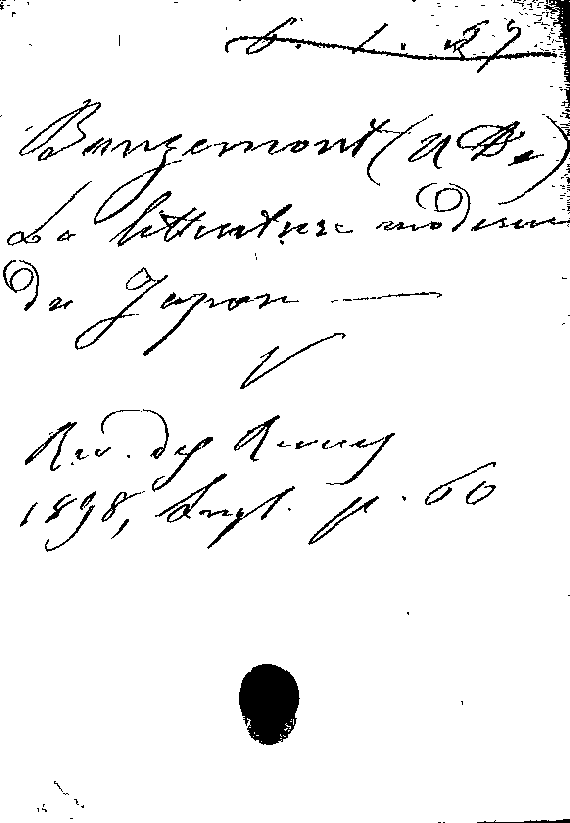 Bangemont (A De)
La littérature moderne
du Japon —
Rev. des Revues
1898, Sept. p. 60